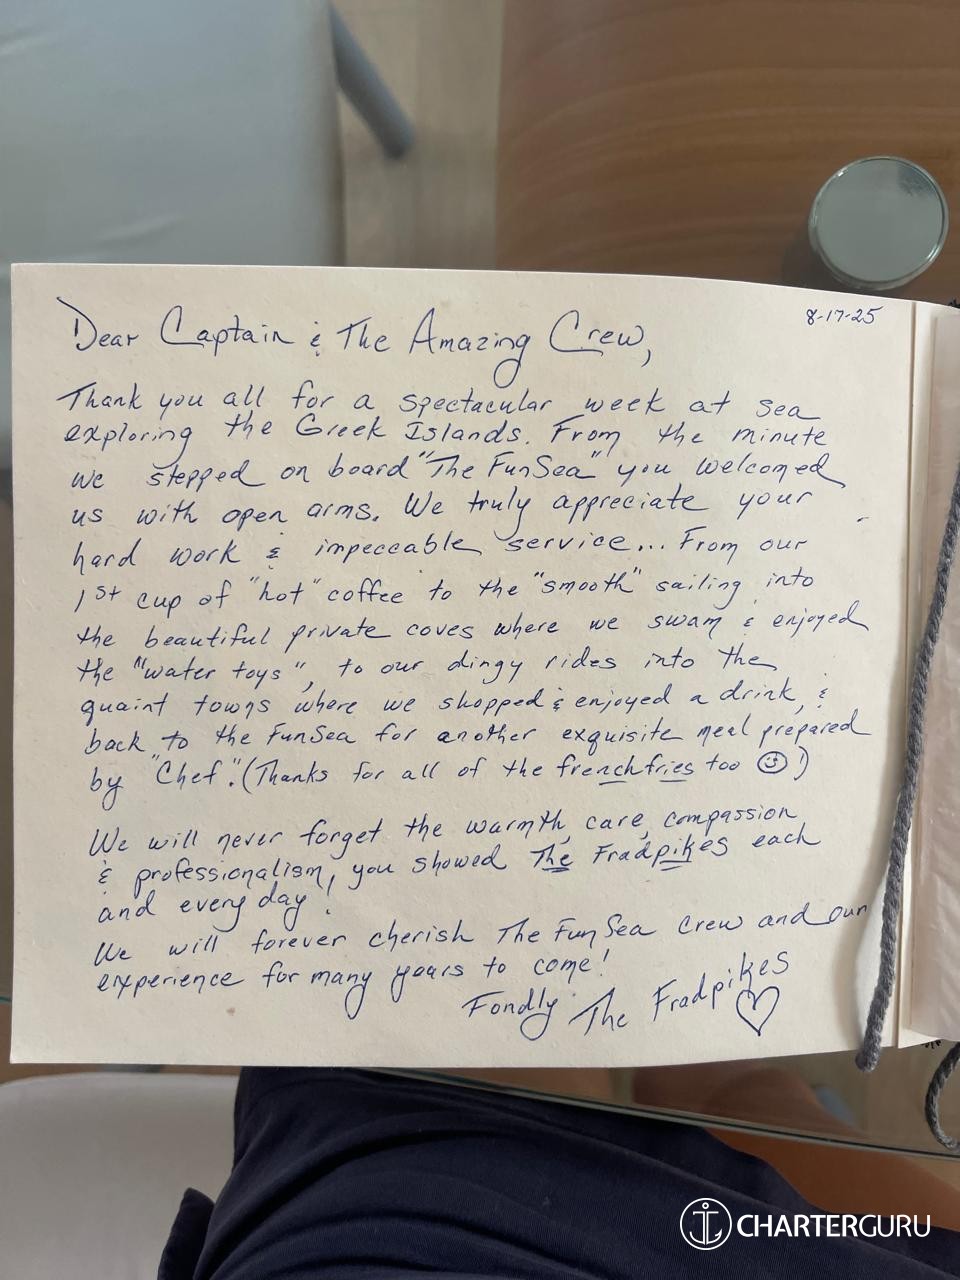 8-17-25
Dear Captain & The Amazing Crew,
Thank you all for a spectacular week at sea
exploring the Greek Islands. From the minute
we stepped on board "The FunSea" you welcomed
us with open arms. We truly appreciate your
hard work & impeccable service... From our
1st cup of "hot" coffee to the "smooth" sailing into
the beautiful private coves where we swam & enjoyed
the "water toys", to our dingy rides into the
quaint towns where we shopped & enjoyed a drink, &
back to the FunSea for another exquisite meal prepared
by "Chef". (Thanks for all of the french fries too ☺!)
We will never forget the warmth, care, compassion
& professionalism, you showed The Fradpikes each
and every day!
We will forever cherish The FunSea Crew and our
experience for many years to come!
Fondly The Fradpikes
♡
CHARTERGURU